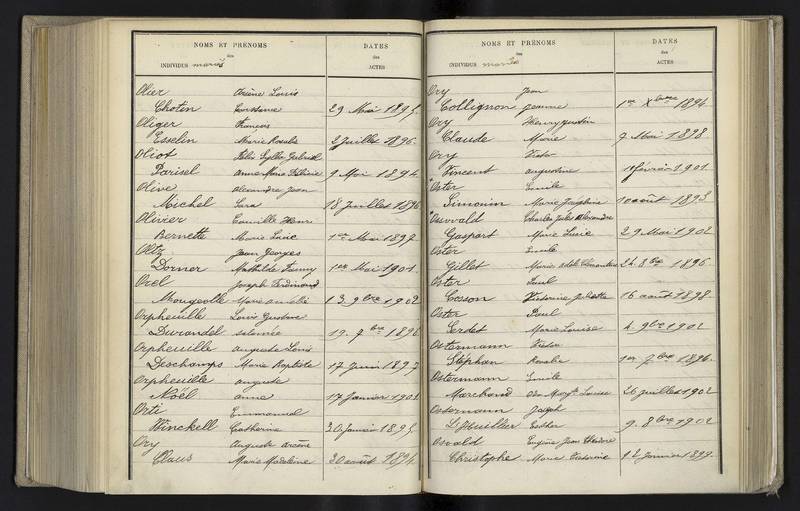 NOMS ET PRÉNOMS
des
INDIVIDUS mariés
DATES
des
ACTES
Olier Louis
Choten Constance 29 Mai 1895
Oliger François
Esselin Marie Rosalie 2 Juillet 1896
Oliot Gabriel
Parisel Anne Marie 9 Mai 1894
Olive Alexandre Jean
Michel Sara 18 Juillet 1896
Olivier Camille Henri
Bernette Marie 1er Mai 1897
Oltz Jean Georges
Dorner Mathilde Fanny 1er Mai 1901
Orel Joseph Ferdinand
Mougeolle Marie Amélie 13 9bre 1902
Orpheuille Louis Gustave
Durandel 19 7bre 1896
Orpheuille Auguste Louis
Deschamps Marie Baptiste 17 Juin 1897
Orpheuille Auguste
Noël Anne 17 Janvier 1902
Orti Emmanuel
Winckell Catherine 30 Janvier 1895
Ory Auguste
Claus Marie Madeleine 30 août 1894
NOMS ET PRÉNOMS
des
INDIVIDUS mariés
DATES
des
ACTES
Ory Jean
Collignon Jeanne 1er Xbre 1894
Ory Henry
Claude Marie 7 Mai 1898
Ory Victor
Vincent Augustine février 1901
Oster Emile
Simonin Marie Joséphine 10 août 1893
Osvvald Charles Jules Alexandre
Gaspart Marie Lucie 29 Mai 1902
Oster Emile
Gillet Marie 24 8bre 1896
Oster Paul
Cosson Victorine 16 août 1898
Oster Paul
Serdet Marie Louise 4 9bre 1902
Ostermann Victor
Stéphan Rosalie 1er 7bre 1896
Ostermann Emile
Marchand Louise 26 Juillet 1902
Ostermann Joseph
L'Huillier Esther 9 8bre 1902
Osvald Eugène Jean Théodore
Christophe Marie Victorine 12 Janvier 1899